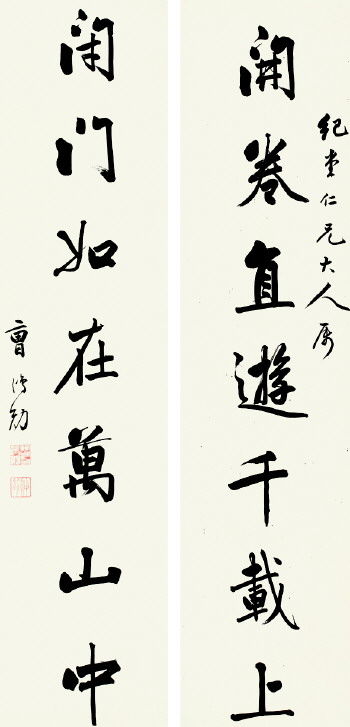 紀堂仁兄大人属
開卷直遊千載上
閉門如在萬山中
曹鴻勛